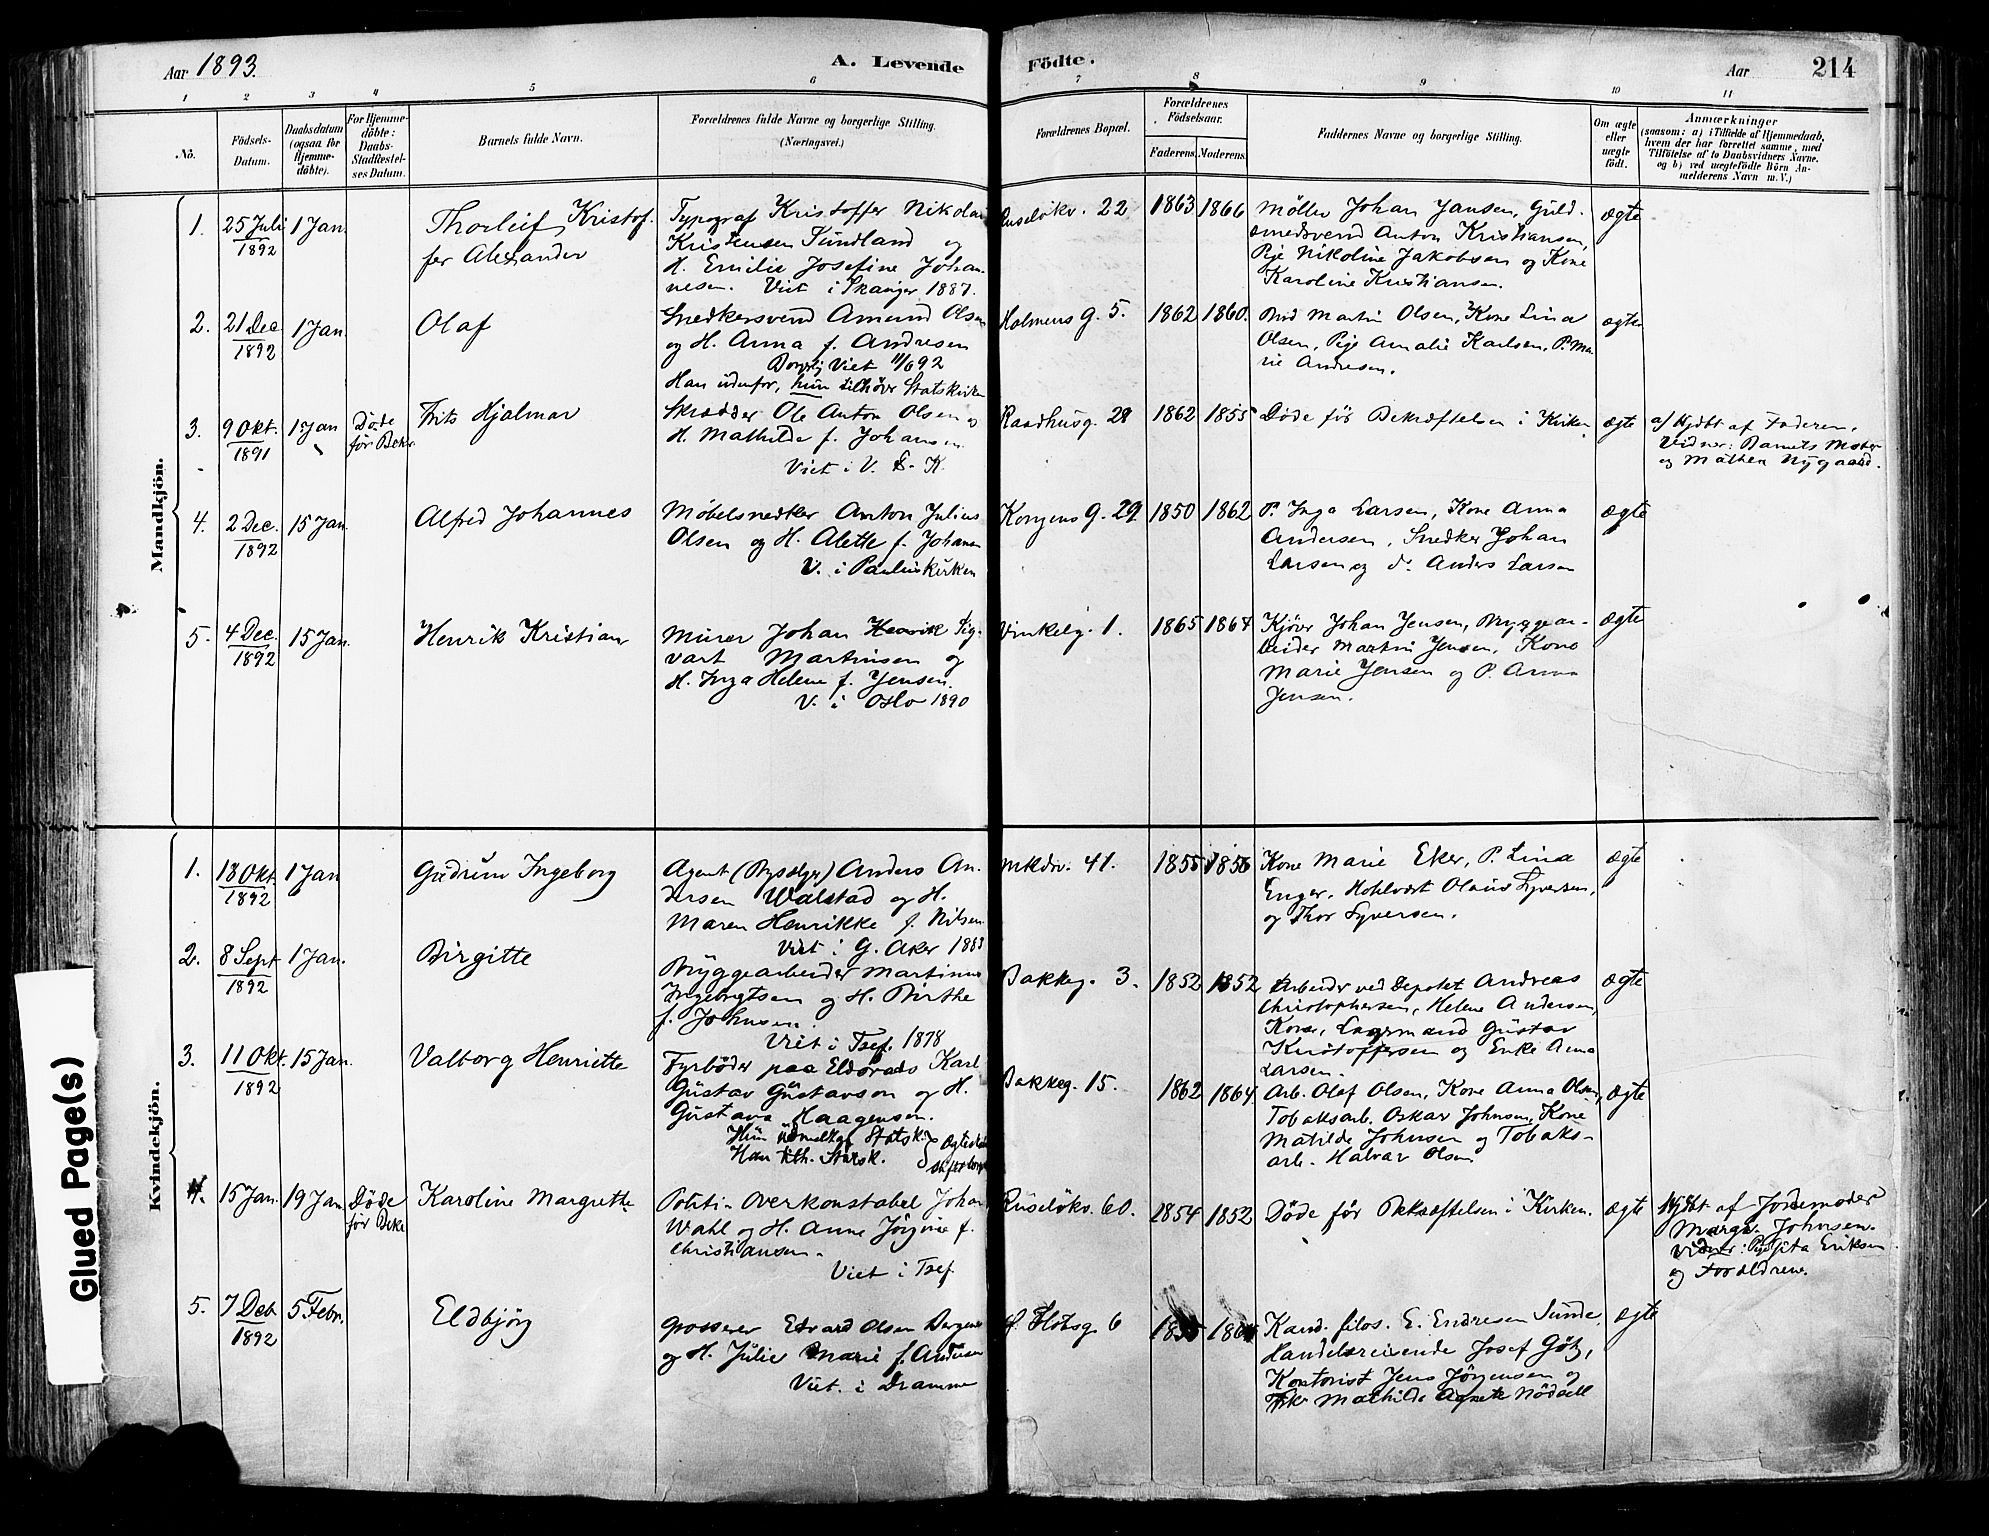 Aar 1893.
A. Levende Födte.
Aar 214
1 2 3 4 5 6 7 8 9 10 11
No.
Födsels-
Datum.
Daabsdatum
(ogsaa for
Hjemme-
döbte).
For Hjemme-
döbte:
Daabs-
Stadfæstel-
ses Datum.
Barnets fulde Navn.
Forældrenes fulde Navne og borgerlige Stilling.
(Næringsvei.)
Forældrenes Bopæl.
Forældrenes
Födselsaar.
Faderens. Moderens.
Faddernes Navne og borgerlige Stilling.
Om ægte
eller
uægte
födt.
Anmærkninger
(saasom: a) i Tilfælde af Hjemmedaab,
hvem der har forrettet samme, med
Tilföielse af to Daabsvidners Navne.
og b) ved uægtefödte Börn An-
melderens Navn m. V.)
Mandkjön.
1. 25 Juli 1892 1 Jan.
Thorleif Kristof-
fer Alexander
Typograf Kristoffer Nikolai
Kristensen Sundland og
H. Emilie Josefine Johan-
nesen. Viet i Skanger 1887.
Ruseløkv. 22 1863 1866
Møller Johan Jansen, Guld-
smedsvend Anton Kristiansen,
Pige Nikoline Jakobsen og Kone
Karoline Kristiansen.
ægte
2. 21 Dec. 1892 1 Jan.
Olaf
Snedkersvend Amund Olsen
og H. Anna f. Andresen
Borgerlig Viet 11/6 92
Han udenfor, hun tilhører Statskirken
Holmens g. 5. 1862 1860.
Martin Olsen, Kone Lina
Olsen, Pige Amalie Karlsen, P. Ma-
rie Andresen.
ægte
3. 9 Okt. 1891 1 Jan
Døde
før Bekr.
Frits Hjalmar
Skrædder Ole Anton Olsen og
H. Mathilde f. Johansen
Viet i V. F. K.
Raadhusg. 28 1862 1855
Døde før Bekræftelsen i Kirken
ægte
a/ Hjdbt af Faderen.
Vidner: Barnets Moder
og Mathea Nygaard.
4. 2 Dec. 1892 15 Jan.
Alfred Johannes
Møbelsnedker Anton Julius
Olsen og H. Alette f. Johansen
V. i Pauluskirken
Kongens g. 29 1850 1862
P. Inga Larsen, Kone Anna
Andersen, Snedker Johan
Larsen og d. Anders Larsen
ægte
5. 4 Dec. 1892 15 Jan.
Henrik Kristian
Murer Johan Henrik Sig-
vart Martinsen og
H. Inga Helene f. Jensen.
V. i Oslo 1890
Vinkelg. 1. 1865 1864
Kjører Johan Jensen, Bryggear-
beider Martin Jensen, Kone
Marie Jensen og P. Anna
Jensen.
ægte
Kvindekjön.
1. 18 Okt. 1892 1 Jan
Gudrun Ingeborg
Agent Anders An-
dersen Walstad og H.
Maren Henrikke f. Nilsen
Viet i G. Aker 1883
Mkdv. 41. 1855 1856
Kone Marie Eker, P. Lina
Enger, Olaus Syversen,
og Thor Syversen.
ægte
2. 8 Sept 1892 1 Jan.
Birgitte
Bryggearbeider Martinus
Ingebrigtsen og H. Birthe
f. Johnsen.
Viet i Tref. 1878
Bakkeg. 3. 1852 1852
Arbeider ved Depotet Andreas
Christophersen, Helene Andersen,
Kone, Lagermand Gustav
Kristoffersen og Enke Anna
Larsen.
ægte
3. 11 Okt. 1892 15 Jan.
Valborg Henriette
Fyrbøder paa Eldorado Karl
Gustav Gustavson og H.
Gustava Haagensen.
Hun udmeldt Statsk.
Han tilh. Statsk.
Bakkeg. 15. 1862 1864
Arb. Olaf Olsen, Kone Anna Olsen,
Tobaksarb. Oskar Johnsen, Kone
Matilde Johnsen og Tobaks-
arb. Halvar Olsen
ægte
4. 15 Jan. 19 Jan.
Døde
før Bekr
Karoline Margrethe
Politi-Overkonstabel Johan
Wahl og H. Anne Jørgine f.
Christiansen.
Viet i Tref.
Ruseløkv. 60. 1854 1852
Døde før Bekræftelsen i Kirken.
ægte
Hjdbt af Jordemoder
Marga. Johnsen.
Vidner: Eriksen
og Forældrene.
5. 7 Deb. 1892 5 Febr.
Eldbjørg
Grosserer Edvard Olsen
og H. Julie Marie f. Andersen
Viet i Drammen
H. Slotsg. 6
Kand. filos. E. Endresen Sunde,
Handelsreisende Josef Götz,
Kontorist Jens Jørgensen og
Frk. Mathilde Agnete Nødsell
ægte
Glued Page(s)